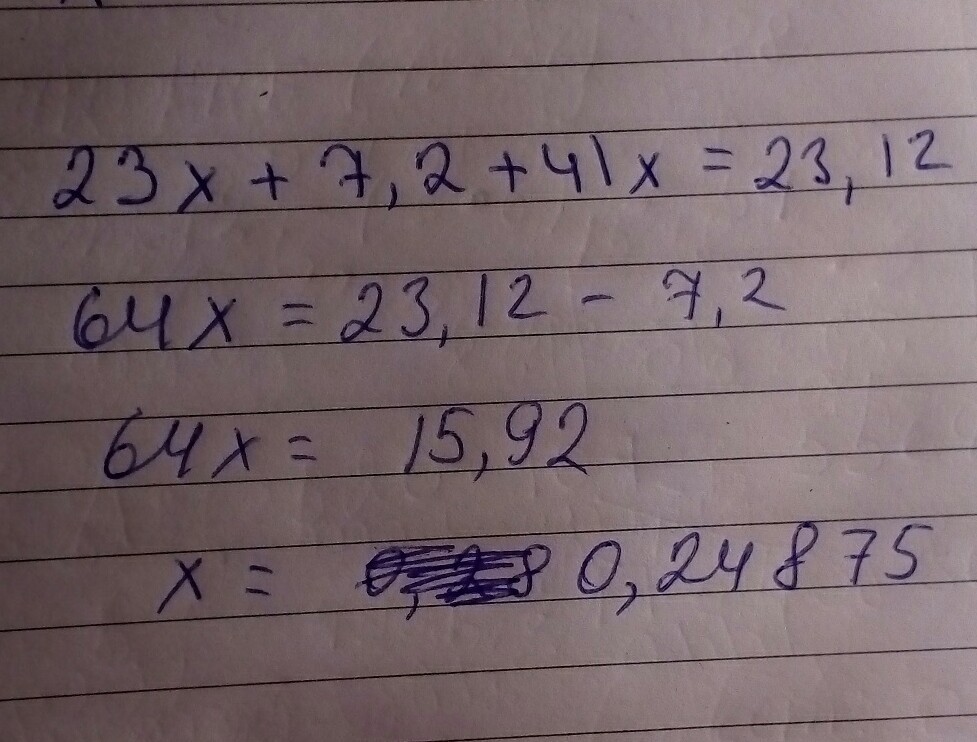 23x + 7,2 + 41x = 23,12
64x = 23,12 - 7,2
64x = 15,92
x = 0,24875